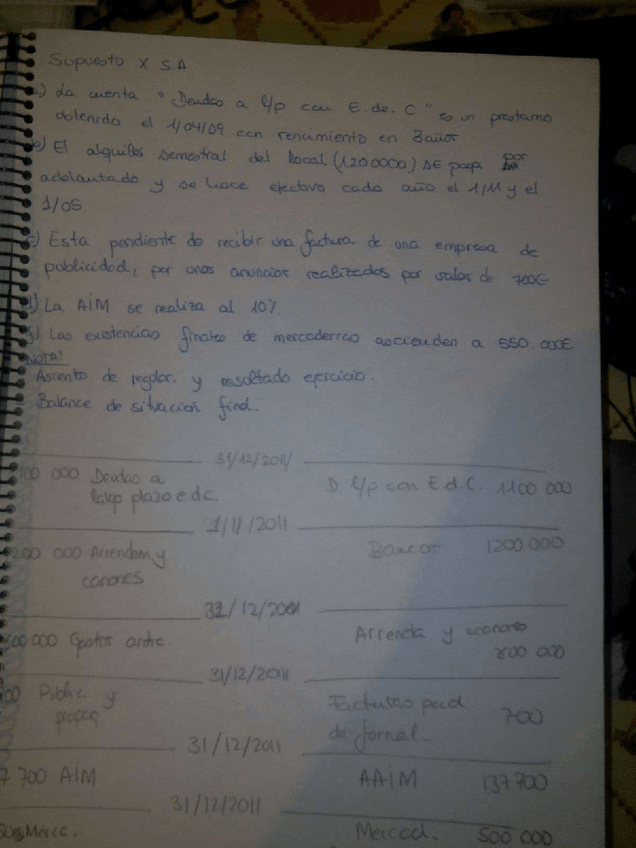 Supuesto X S.A
a) La cuenta "Deudas a l/p con E. de. C" es un prestamo
obtenido el 1/04/09 con vencimiento en 3 años
b) El alquiler semestral del local (1200000) se paga por
adelantado y se hace efectivo cada año el 1/11 y el
1/05.
c) Esta pendiente de recibir una factura de una empresa de
publicidad, por unos anuncios realizados por valor de 700€
d) La AIM se realiza al 10%
f) Las existencias finales de mercaderias ascienden a 550.000€
NOTA!
Asiento de regular. y resultado ejercicio.
Balance de situación final.
31/12/2011
100 000 Deudas a D l/p con E d C. 1100 000
largo plazo e d c.
1/11/2011
200 000 Arrendam y Bancos 1200 000
canones
31/12/2011
800 000 Gastos antic Arrenda y canones
800 000
31/12/2011
00 Public y Facturas pend 700
propag de formal.
31/12/2011
7 700 AIM AAIM 137 700
31/12/2011
Mercc. Mercad. 500 000